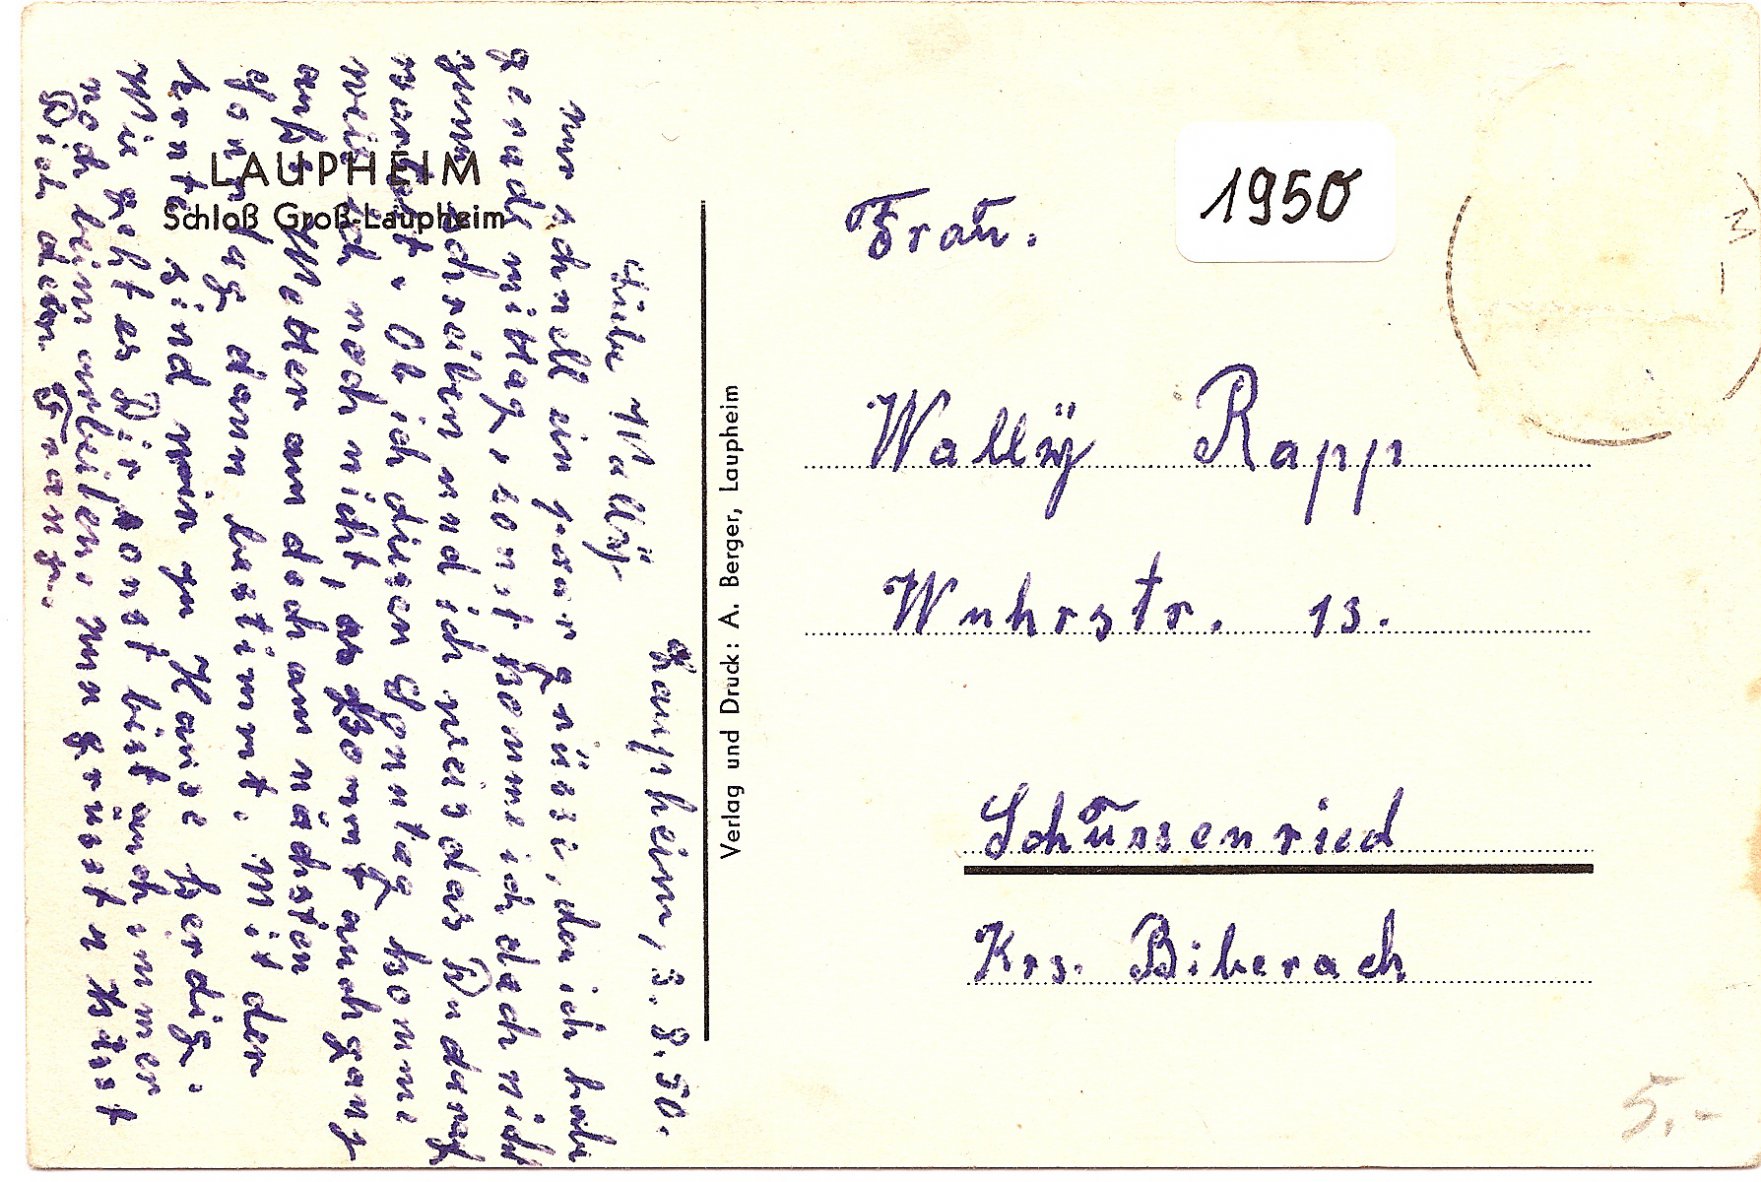 LAUPHEIM
Schloß Groß-Laupheim
Laupheim, 3. 8. 50.
Liebe Wallÿ
Nur schnell ein paar grüsse, den ich habe
gerade mittag, sonst komme ich doch nicht
zum schreiben und ich weis das Du darauf
wartest. Ob ich diesen Sonntag komme
weis ich noch nicht, es kommt auch ganz
aufs Wetter an doch am nächsten
Sonntag dann bestimmt. Mit der
ernte sind wir zu Hause ferdig.
Wie geht es Dir sonst bist auch immer
noch beim arbeiten. Nun grüsst u küsst
Dich dein Franz.
Verlag und Druck: A. Berger, Laupheim
1950
Frau.
Wallÿ Rapp
Wuhrstr. 13.
Schussenried
Krs. Biberach
5.-